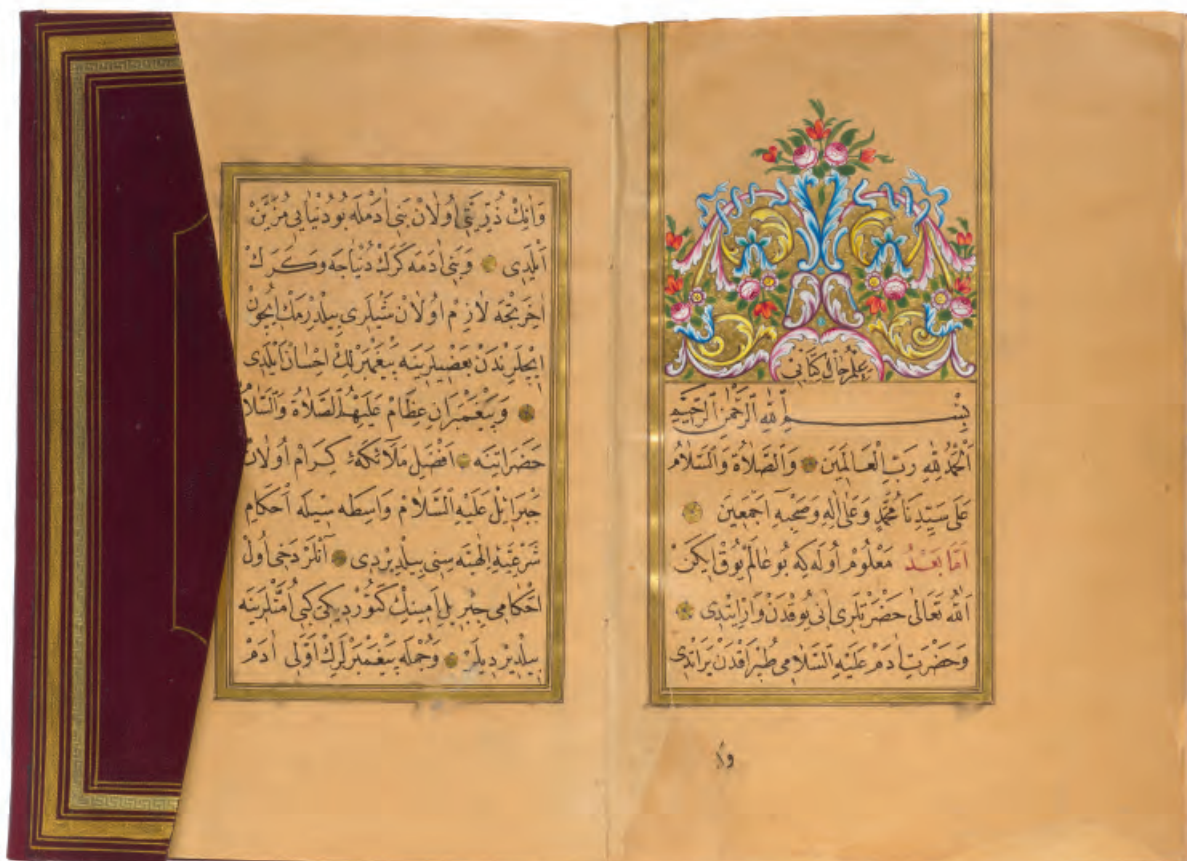 علم حال كتابى
بِسْمِ اللهِ الرَّحْمٰنِ الرَّحِيمِ
اَلْحَمْدُ لِلّٰهِ رَبِّ الْعَالَمِينَ ۞ وَالصَّلَاةُ وَالسَّلَامُ
عَلَى سَيِّدِنَا مُحَمَّدٍ وَعَلَى اٰلِهِ وَصَحْبِهِ اَجْمَعِينَ ۞
اَمَّا بَعْدُ مَعْلُومْ اُولَه كِه بُو عَالَمْ يُوقْ ايكَنْ
اَللّٰهُ تَعَالٰى حَضْرَتْلَرِى اَنِى يُوقْدَنْ وَارْ اِيتْدِى ۞
وَحَضْرَتِ اٰدَمْ عَلَيْهِ السَّلَامِى طُپْرَاقْدَنْ يَرَاتْدِى
وَا
وَانِكْ ذُرِّيَّتِى اُولَانْ بَنِى اٰدَمْلَه بُو دُنْيَايِى مُزَيَّنْ
اَيْلَدِى ۞ وَبَنِى اٰدَمَه كَرَكْ دُنْيَاجَه وَكَرَكْ
اٰخِرَتْجَه لَازِمْ اُولَانْ شَيْلَرِى بِيلْدِرْمَكْ اِيچُونْ
اِيچْلَرِنْدَنْ بَعْضِيلَرِينَه پَيْغَمْبَرْلِكْ اِحْسَانْ اَيْلَدِى
۞ وَپَيْغَمْبَرَانِ عِظَامْ عَلَيْهِمُ الصَّلَاةُ وَالسَّلَامُ
حَضَرَاتِنَه ۞ اَفْضَلِ مَلٰٓائِكَهٔ كِرَامْ اُولَانْ
جِبْرَائِلْ عَلَيْهِ السَّلَامْ وَاسِطَه سِيلَه اَحْكَامِ
شَرْعِيَّهٔ اِلٰهِيَّه سِنِى بِيلْدِيرْدِى ۞ اَنْلَرْ دَخِى اُولْ
اَحْكَامِى جِبْرِيلِ اَمِينِكْ كَتُورْدِيكِى كِبِى اُمَّتْلَرِينَه
بِيلْدِيرْدِيلَرْ ۞ وَجُمْلَه پَيْغَمْبَرْلَرِكْ اَوَّلِى اٰدَمْ